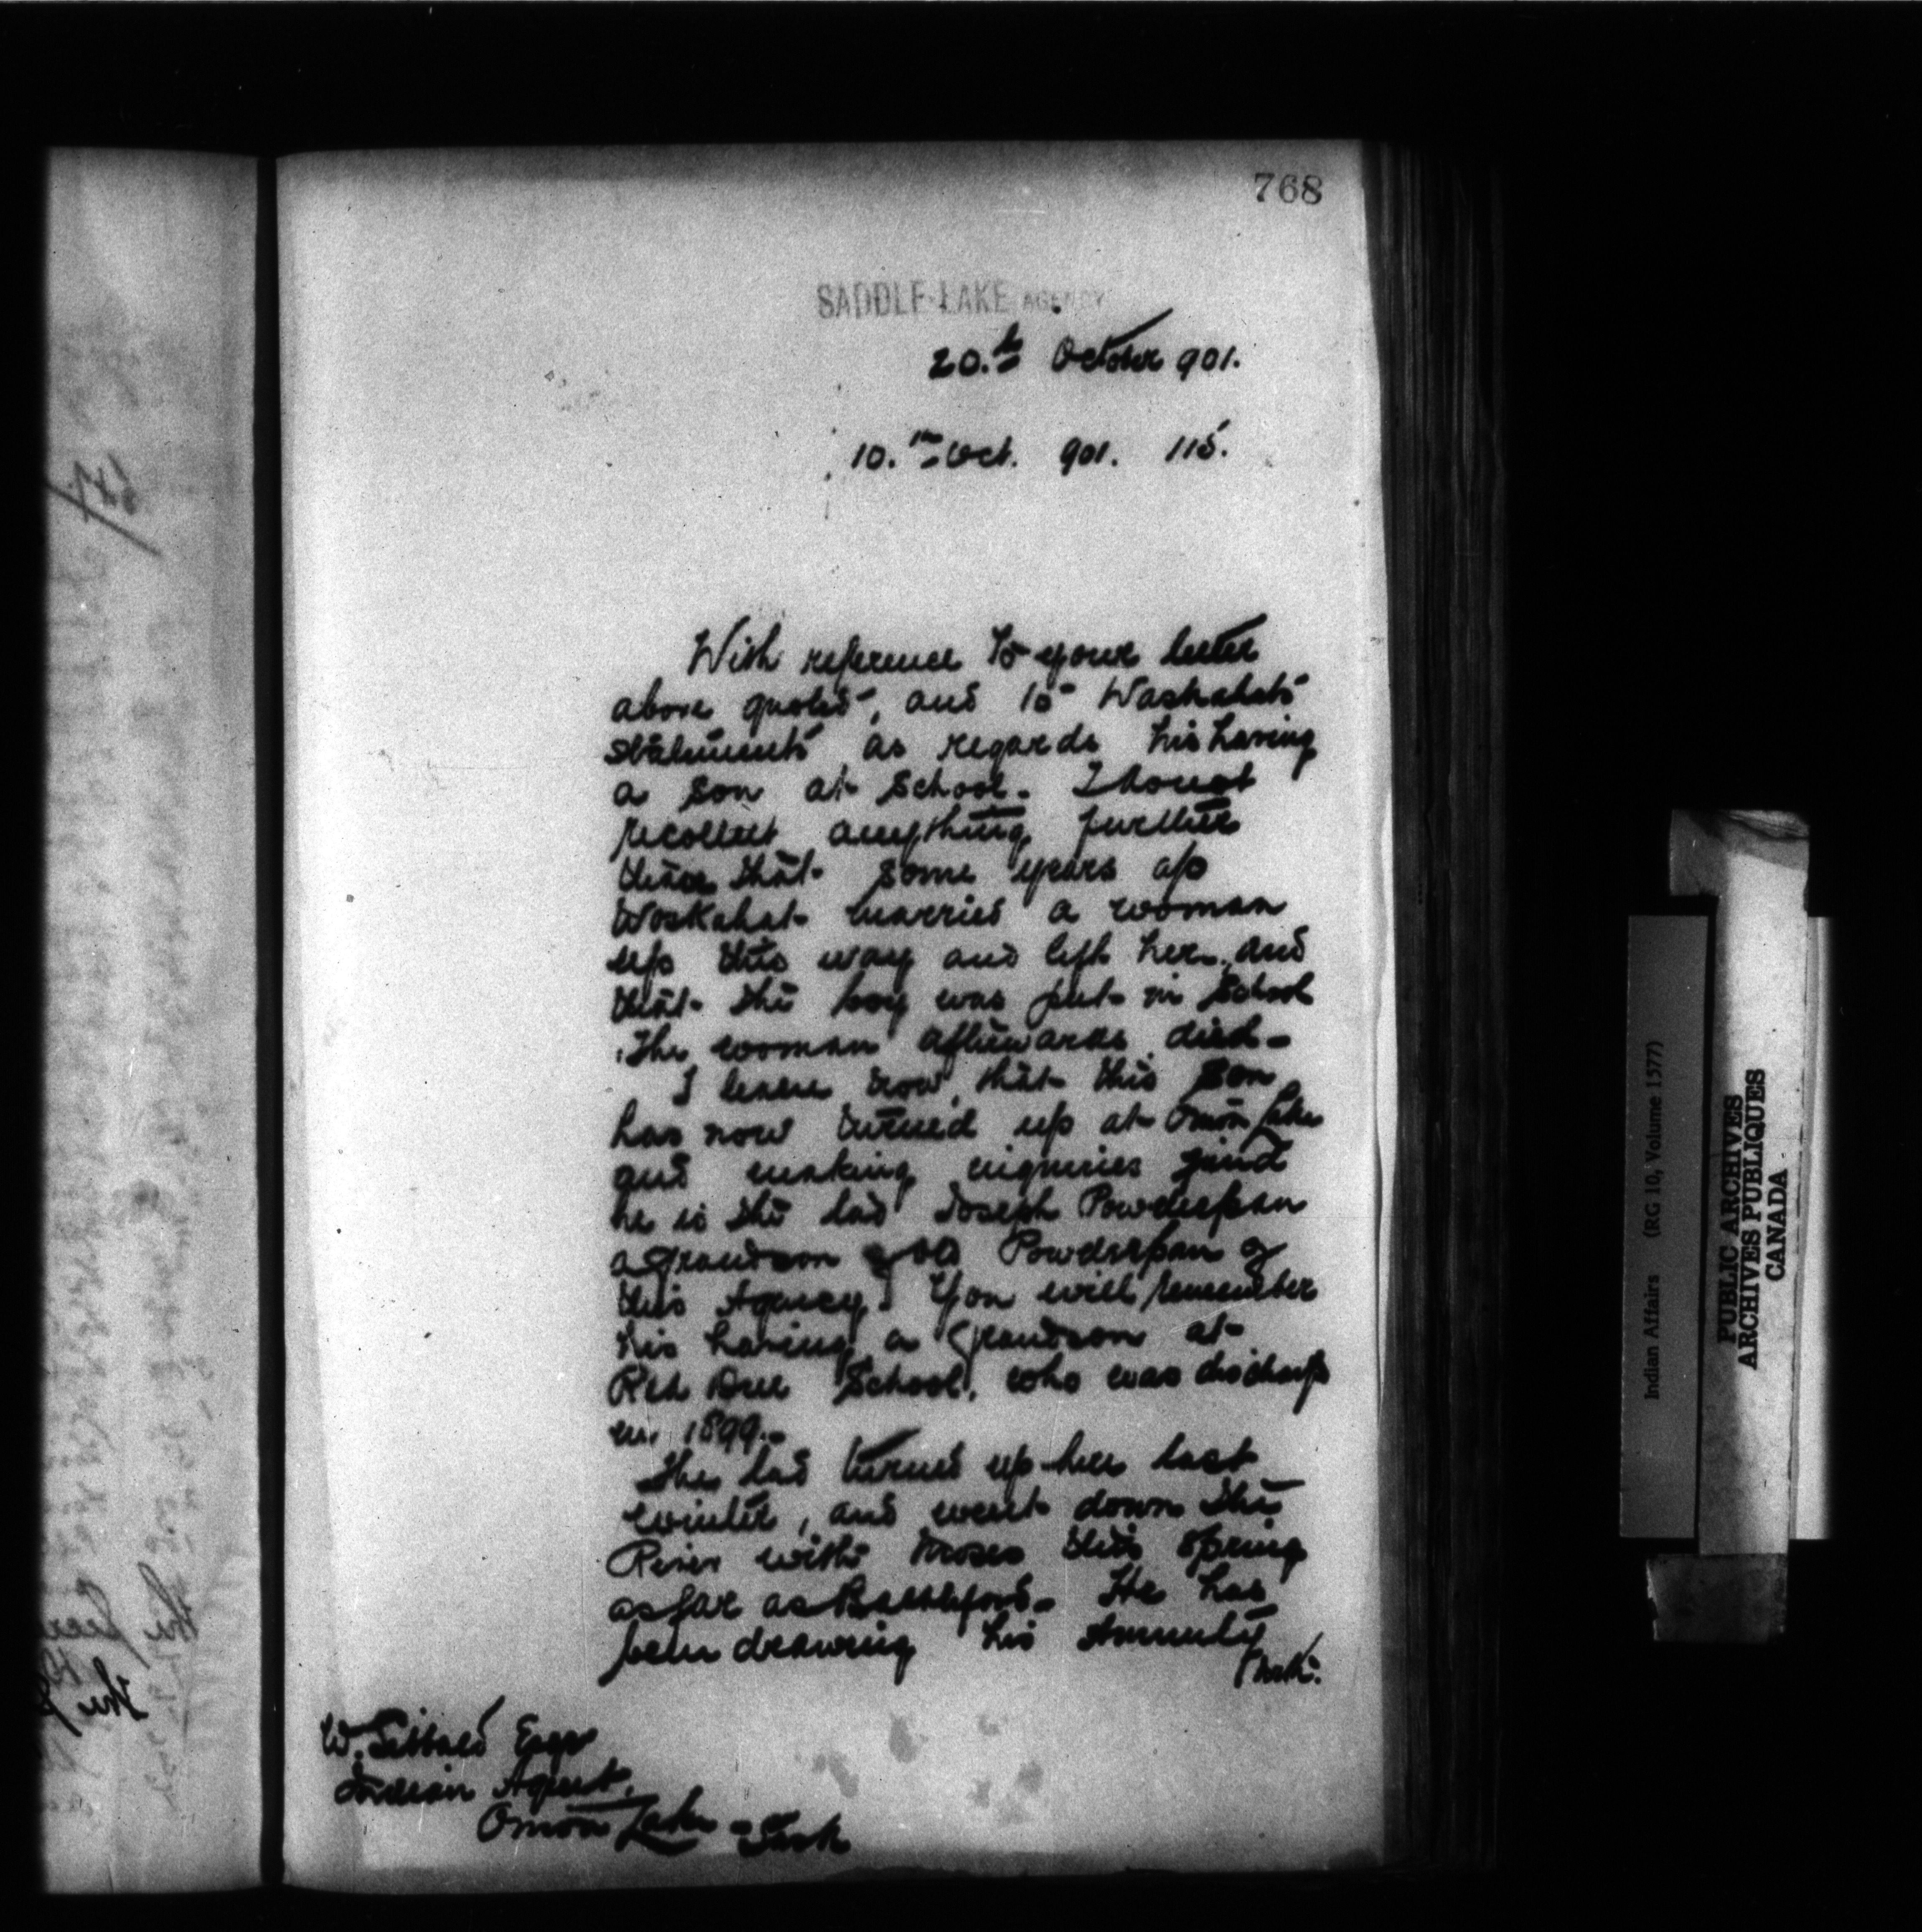 768
SADDLE LAKE AGENCY
20.th October 901.
10.th Oct. 901. 115.
With reference to your letter
above quoted, and to Waskahats
statements as regards his having
a son at School. I do not
recollect anything further
than that some years ago
Waskahat married a woman
up this way and left her, and
that the boy was put in School
The woman afterwards died.
I learn now, that this son
has now turned up at Onion Lake
and making inquiries find
he is the lad Joseph Powderpan
a grandson of old Powderpan of
this Agency. You will remember
his having a Grandson at
Red Deer School, who was discharg
in 1899.
The lad turned up here last
winter, and went down the
River with Moses this Spring
as far as Battleford. He has
been drawing his Annuity
W. Sibbald Esqr
Indian Agent.
Onion Lake - Sask
Indian Affairs (RG 10, Volume 1577)
PUBLIC ARCHIVES
ARCHIVES PUBLIQUES
CANADA